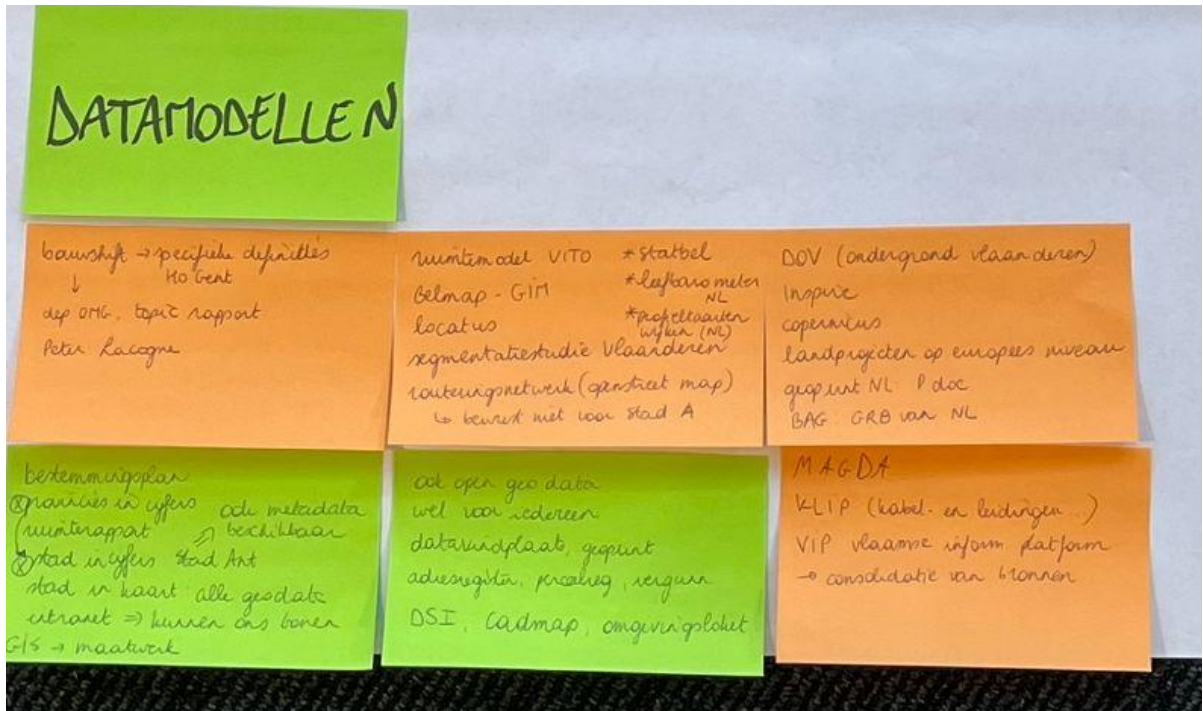 DATAMODELLEN
bouwshift → specifieke definities
HO Gent
↓
dep OMG, topic rapport
Peter Lacogne
ruimtemodel VITO
Belmap - GIM
locatus
segmentatiestudie Vlaanderen
routeringsnetwerk (openstreet map)
↳ bewust niet voor stad A
* statbel
* leefbarometer
NL
* profielkaarten
wijken (NL)
DOV (ondergrond vlaanderen)
Inspire
copernicus
landprojecten op europees niveau
geopunt NL: Pdoc
BAG: GRB van NL
bestemmingsplan
provincies in cijfers
ruimterapport
ook metadata
beschikbaar
stad in cijfers stad Ant
stad in kaart: alle geodata
intranet ⇒ kunnen ons
GIS → maatwerk
ook open geo data
wel voor iedereen
datavindplaats, geopunt
adresregister, perceelreg, vergunn
DSI, Cadmap, omgevingsloket
MAGDA
KLIP (kabel- en leidingen...)
VIP vlaamse inform platform
→ consolidatie van bronnen